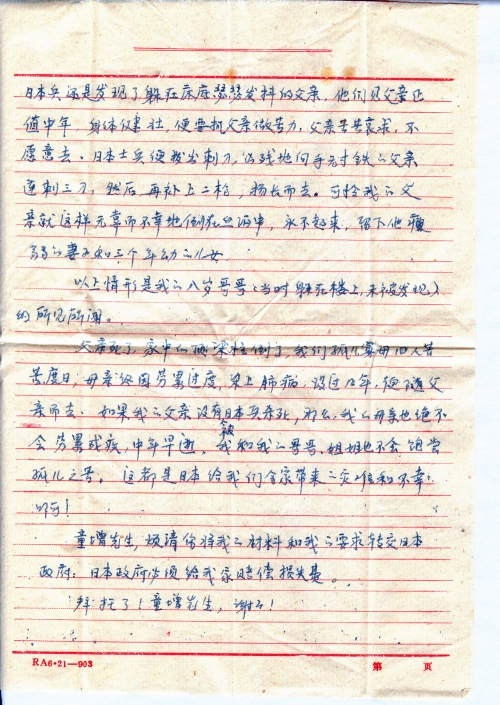 日本兵还是发现了躲在床底瑟瑟发抖的父亲，他们见父亲正
值中年，身体健壮，便要抓父亲做苦力，父亲苦苦哀求，不
愿意去。日本士兵便拔出刺刀，凶残地向手无寸铁的父亲
连刺三刀，然后再补上二枪，扬长而去。可怜我的父
亲就这样无辜而不幸地倒在血泊中，永不起来，留下他瘦
弱的妻子和三个年幼的儿女
以上情形是我的八岁哥哥（当时躲在楼上，未被发现）
的所见所闻。
父亲死了，家中的顶梁柱倒了，我们孤儿寡母四人苦
苦度日，母亲终因劳累过度，染上肺病，没过几年，便随父
亲而去。如果我的父亲没有被日本兵杀死，那么，我的母亲也绝不
会劳累成疾，中年早逝，我和我的哥哥、姐姐也不会饱尝
孤儿之苦。这都是日本给我们全家带来的灾难和不幸
啊！
童增先生，烦请你将我的材料和我的要求转交日本
政府：日本政府必须给我家赔偿损失
拜托了！童增先生，谢谢！
RA6·21—903 第 页